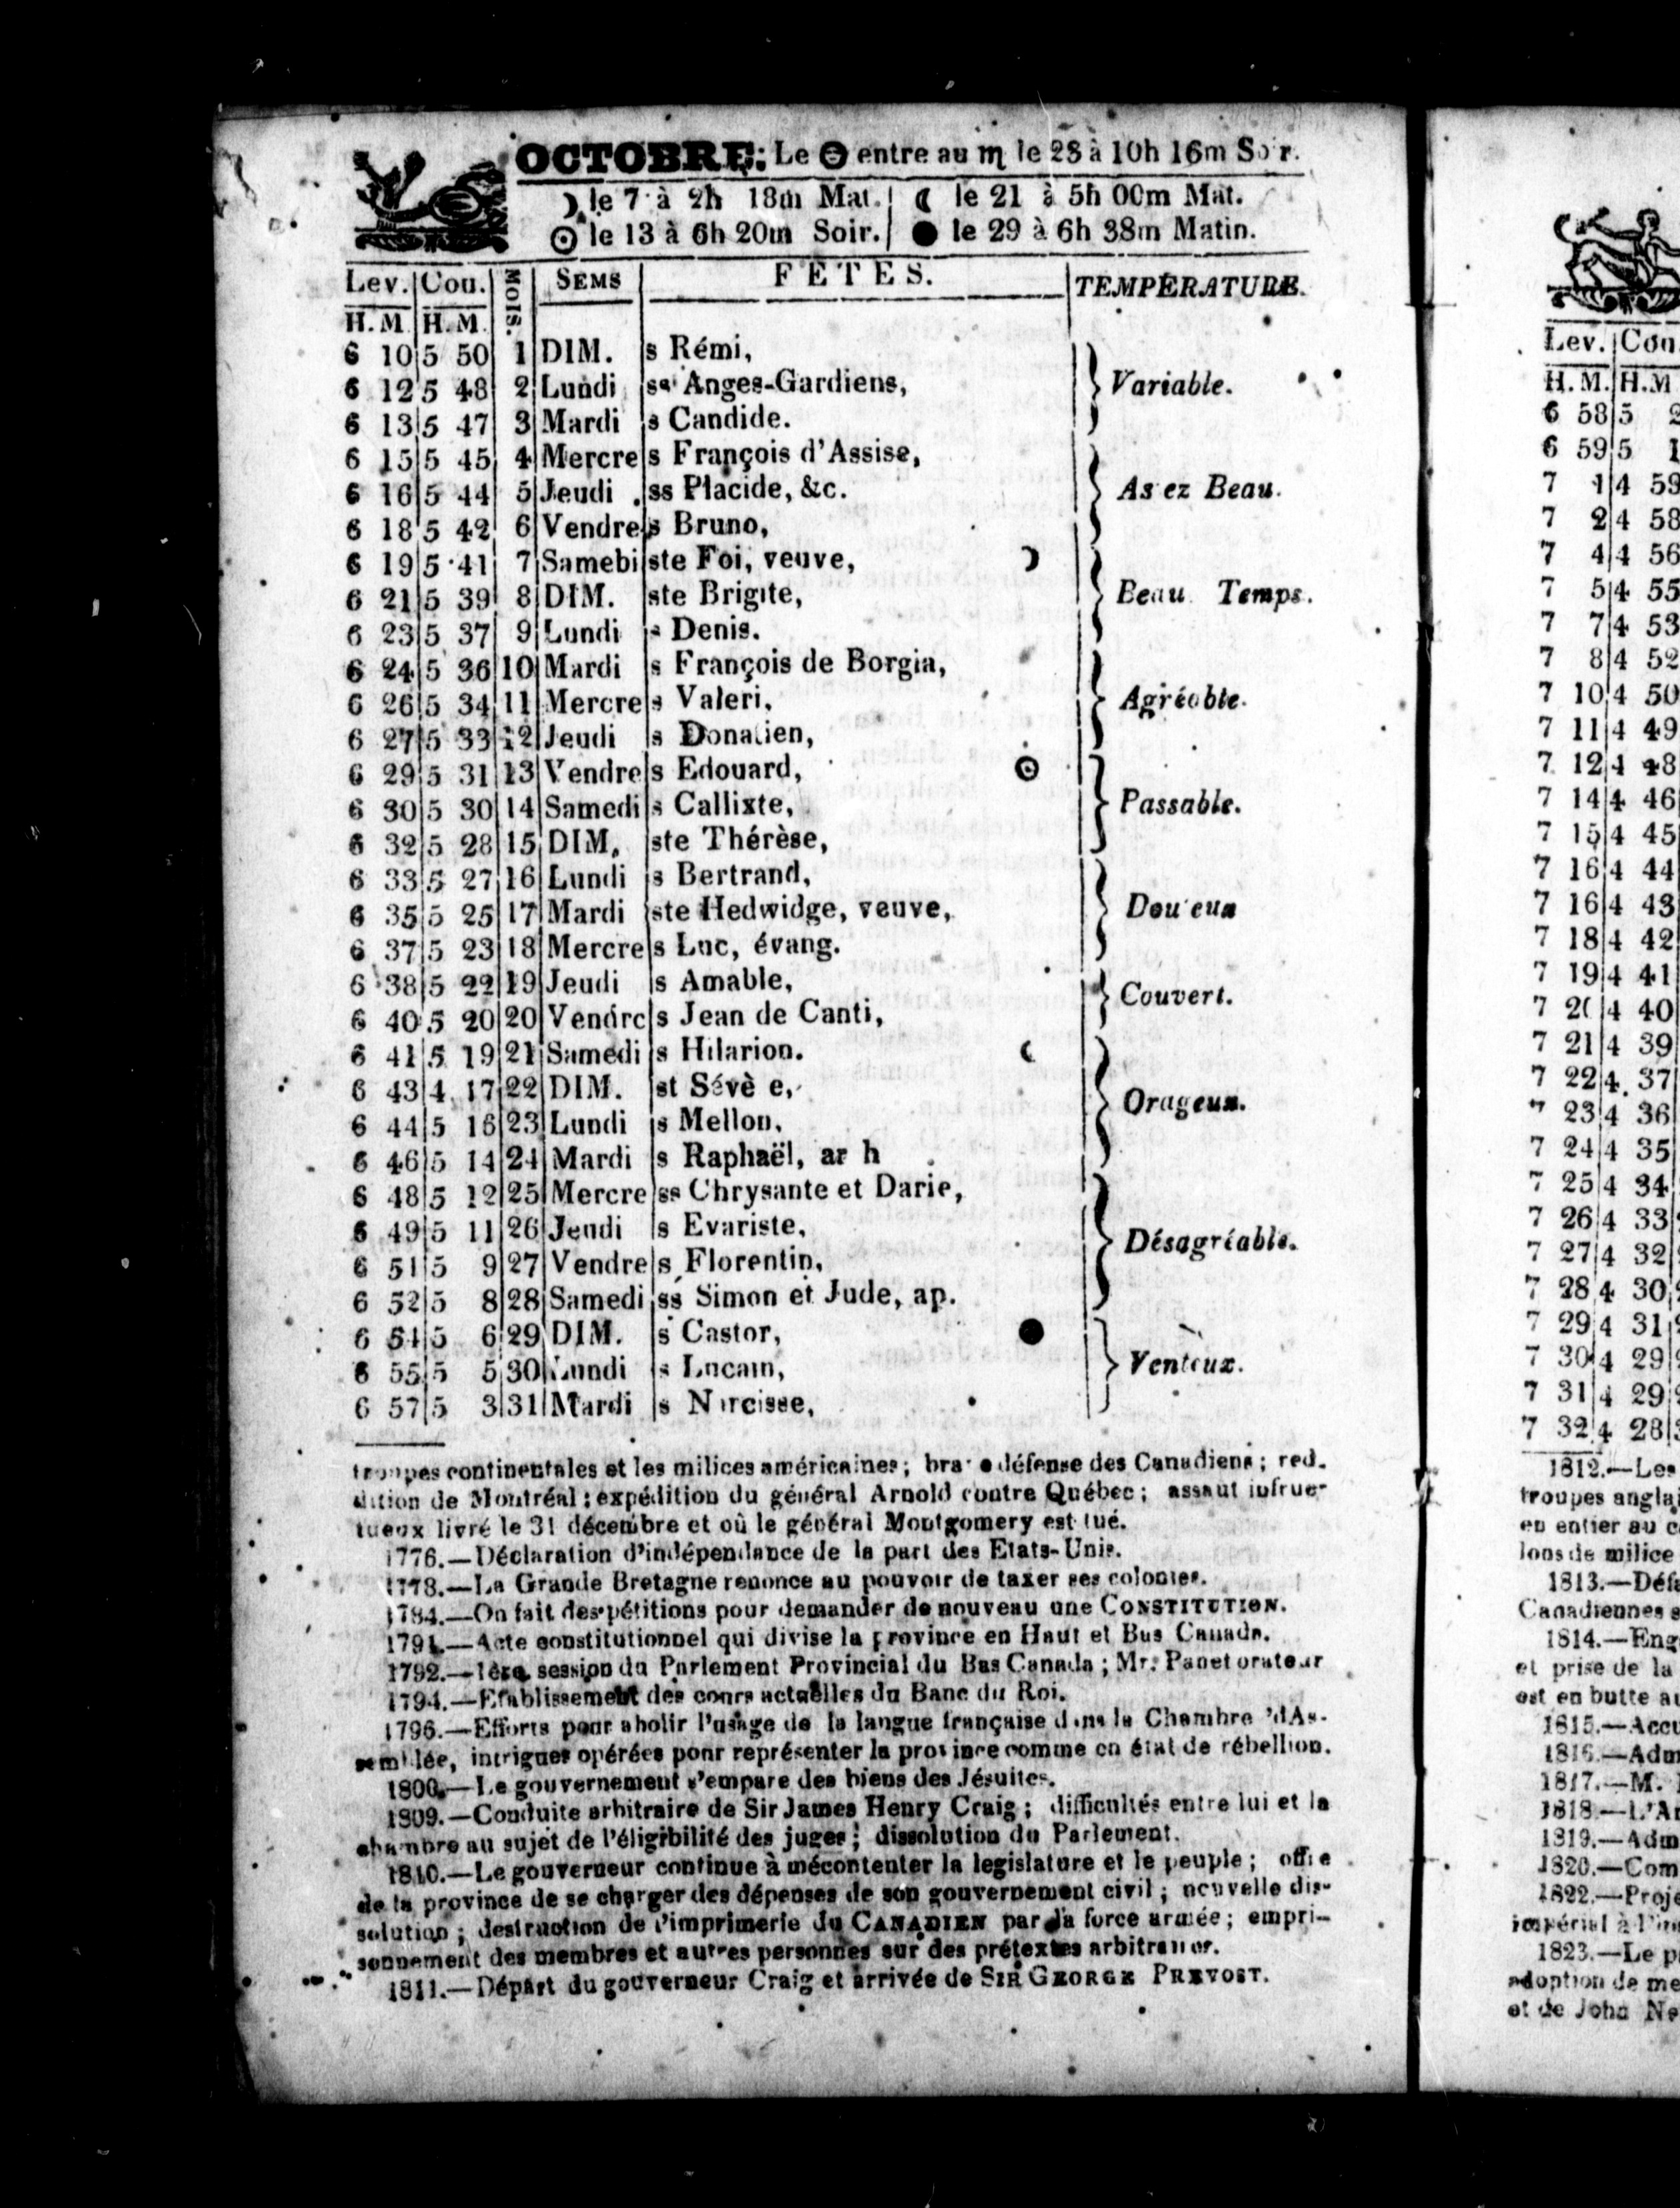 OCTOBRE: Le ☉ entre au ♏ le 23 à 10h 16m Soir.
☽ le 7 à 2h 18m Mat. | ☾ le 21 à 5h 00m Mat.
☉ le 13 à 6h 20m Soir. | ● le 29 à 6h 38m Matin.
Lev. Cou. MOIS. SEMS FETES. TEMPÉRATURE.
H. M. H. M.
6 10 5 50 1 DIM. s Rémi,
6 12 5 48 2 Lundi ss Anges-Gardiens, Variable.
6 13 5 47 3 Mardi s Candide.
6 15 5 45 4 Mercre s François d'Assise,
6 16 5 44 5 Jeudi ss Placide, &c. As ez Beau.
6 18 5 42 6 Vendre s Bruno,
6 19 5 41 7 Samebi ste Foi, veuve, ☽
6 21 5 39 8 DIM. ste Brigite, Beau Temps.
6 23 5 37 9 Lundi s Denis.
6 24 5 36 10 Mardi s François de Borgia,
6 26 5 34 11 Mercre s Valeri, Agréable.
6 27 5 33 12 Jeudi s Donatien,
6 29 5 31 13 Vendre s Edouard, ☉
6 30 5 30 14 Samedi s Callixte, Passable.
6 32 5 28 15 DIM. ste Thérèse,
6 33 5 27 16 Lundi s Bertrand,
6 35 5 25 17 Mardi ste Hedwidge, veuve, Dou eux
6 37 5 23 18 Mercre s Luc, évang.
6 38 5 22 19 Jeudi s Amable, Couvert.
6 40 5 20 20 Vendre s Jean de Canti,
6 41 5 19 21 Samedi s Hilarion. ☾
6 43 4 17 22 DIM. st Sévè e, Orageux.
6 44 5 16 23 Lundi s Mellon,
6 46 5 14 24 Mardi s Raphaël, ar h
6 48 5 12 25 Mercre ss Chrysante et Darie,
6 49 5 11 26 Jeudi s Evariste, Désagréable.
6 51 5 9 27 Vendre s Florentin,
6 52 5 8 28 Samedi ss Simon et Jude, ap.
6 54 5 6 29 DIM. s Castor, ●
6 55 5 5 30 Lundi s Lucain, Venteux.
6 57 5 3 31 Mardi s Narcisse,
troupes continentales et les milices américaines; brave défense des Canadiens; red-
dition de Montréal; expédition du général Arnold contre Québec; assaut infruc-
tueux livré le 31 décembre et où le général Montgomery est tué.
1776.—Déclaration d'indépendance de la part des Etats-Unis.
1778.—La Grande Bretagne renonce au pouvoir de taxer ses colonies.
1784.—On fait des pétitions pour demander de nouveau une CONSTITUTION.
1791.—Acte constitutionnel qui divise la province en Haut et Bas Canada.
1792.—1ère session du Parlement Provincial du Bas Canada; Mr. Panet orateur
1794.—Etablissement des cours actuelles du Banc du Roi.
1796.—Efforts pour abolir l'usage de la langue française dans la Chambre 'dAs-
semblée, intrigues opérées ponr représenter la province comme en état de rébellion.
1800.—Le gouvernement s'empare des biens des Jésuites.
1809.—Conduite arbitraire de Sir James Henry Craig; difficultés entre lui et la
chambre au sujet de l'éligibilité des juges; dissolution du Parlement.
1810.—Le gouverneur continue à mécontenter la legislature et le peuple; offie
de la province de se charger des dépenses de son gouvernement civil; nouvelle dis-
solution; destruction de l'imprimerie du CANADIEN par la force armée; empri-
sonnement des membres et autres personnes sur des prétextes arbitraires.
1811.—Départ du gouverneur Craig et arrivée de SIR GEORGE PREVOST.
Lev. Cou
H. M. H. M
6 58 5 2
6 59 5 1
7 1 4 59
7 2 4 58
7 4 4 56
7 5 4 55
7 7 4 53
7 8 4 52
7 10 4 50
7 11 4 49
7 12 4 48
7 14 4 46
7 15 4 45
7 16 4 44
7 16 4 43
7 18 4 42
7 19 4 41
7 20 4 40
7 21 4 39
7 22 4 37
7 23 4 36
7 24 4 35
7 25 4 34
7 26 4 33
7 27 4 32
7 28 4 30
7 29 4 31
7 30 4 29
7 31 4 29
7 32 4 28
1812.—Les
troupes anglai
en entier au c
lons de milice
1813.—Défa
Canadiennes s
1814.—Eng
et prise de la
est en butte au
1815.—Accu
1816.—Adm
1817.—M.
1818.—L'A
1819.—Adm
1820.—Com
1822.—Proje
impérial à l'
1823.—Le p
adoption de me
et de John Ne